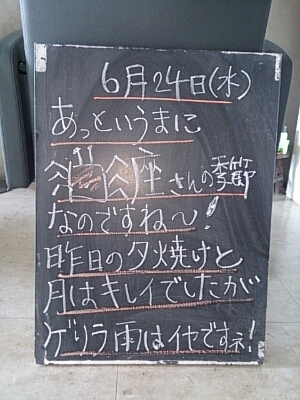 6月24日(水)
あっというまに
座さんの季節
なのですね〜!
昨日の夕焼けと
月はキレイでしたが
ゲリラ雨はイヤですネ!